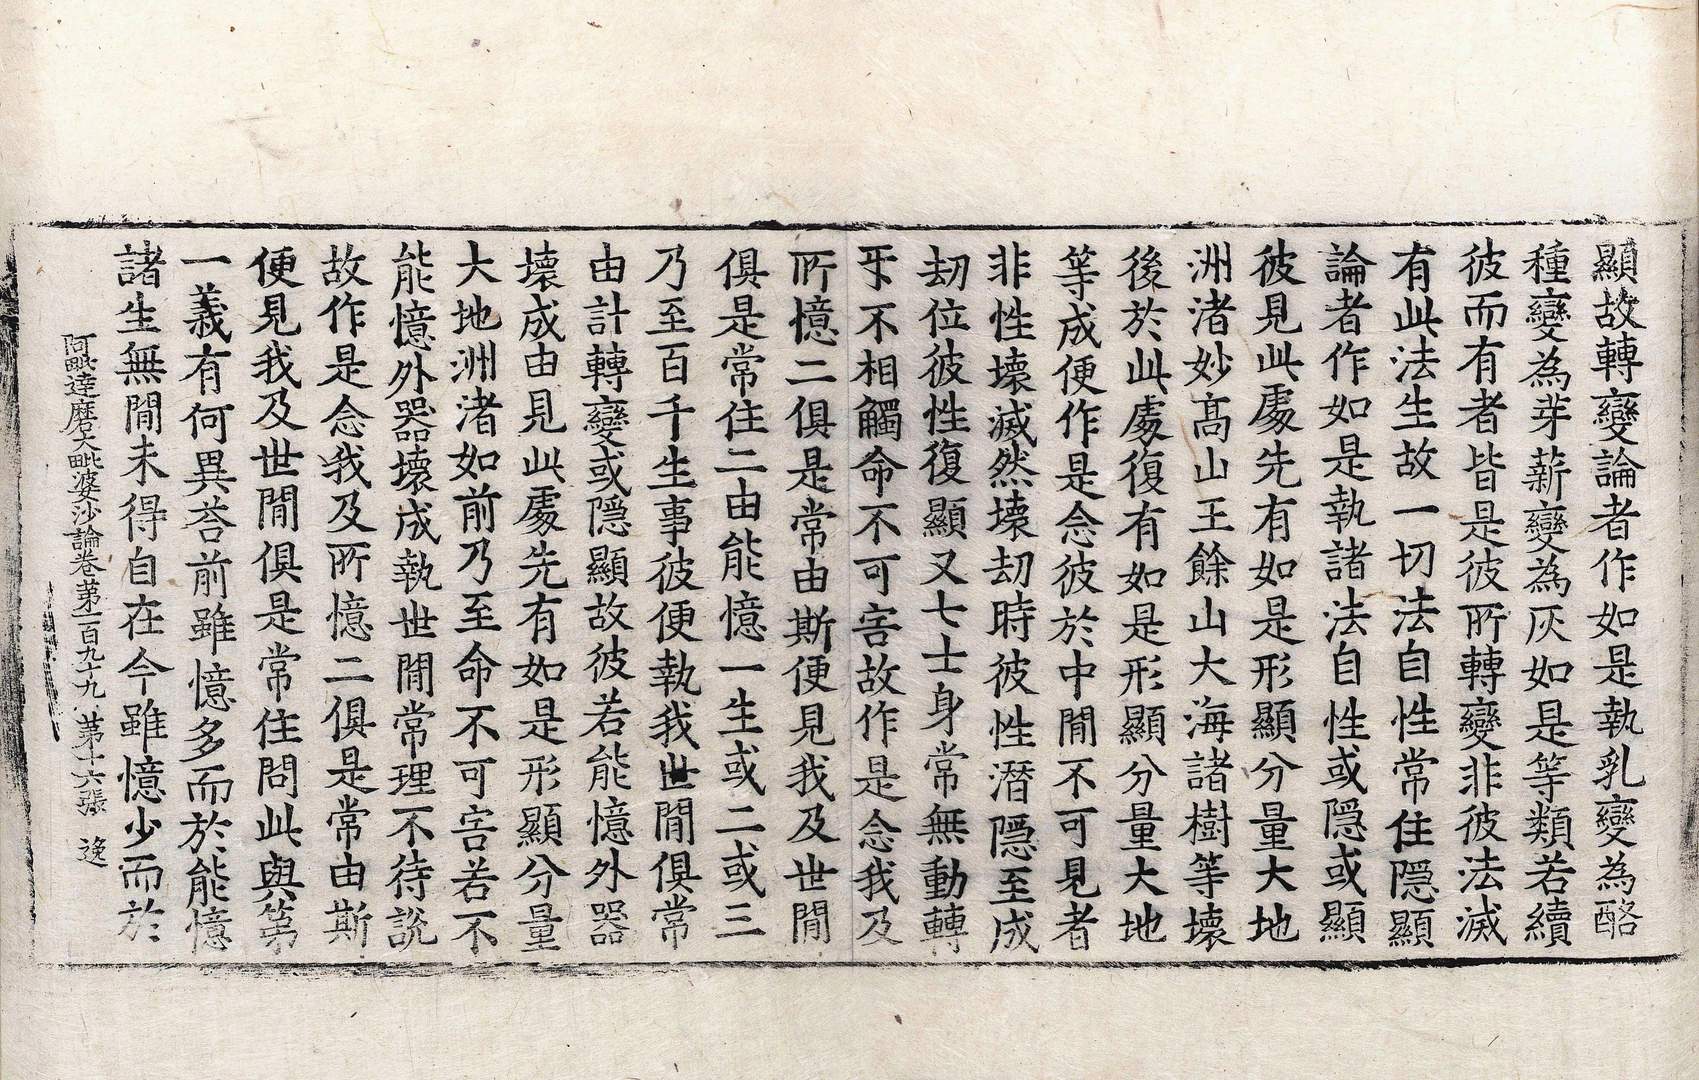 顯故轉變論者作如是執乳變為酪
種變為芽薪變為灰如是等類若續
彼而有者皆是彼所轉變非彼法滅
有此法生故一切法自性常住隱顯
論者作如是執諸法自性或隱或顯
彼見此處先有如是形顯分量大地
洲渚妙高山王餘山大海諸樹等壞
後於此處復有如是形顯分量大地
等成便作是念彼於中間不可見者
非性壞滅然壞劫時彼性潛隱至成
劫位彼性復顯又七士身常無動轉
互不相觸命不可害故作是念我及
所憶二俱是常由斯便見我及世間
俱是常住二由能憶一生或二或三
乃至百千生事彼便執我世間俱常
由計轉變或隱顯故彼若能憶外器
壞成由見此處先有如是形顯分量
大地洲渚如前乃至命不可害若不
能憶外器壞成執世間常理不待說
故作是念我及所憶二俱是常由斯
便見我及世間俱是常住問此與第
一義有何異荅前雖憶多而於能憶
諸生無間未得自在今雖憶少而於
阿毗達磨大毗婆沙論卷第一百九十九 第十六張 逸